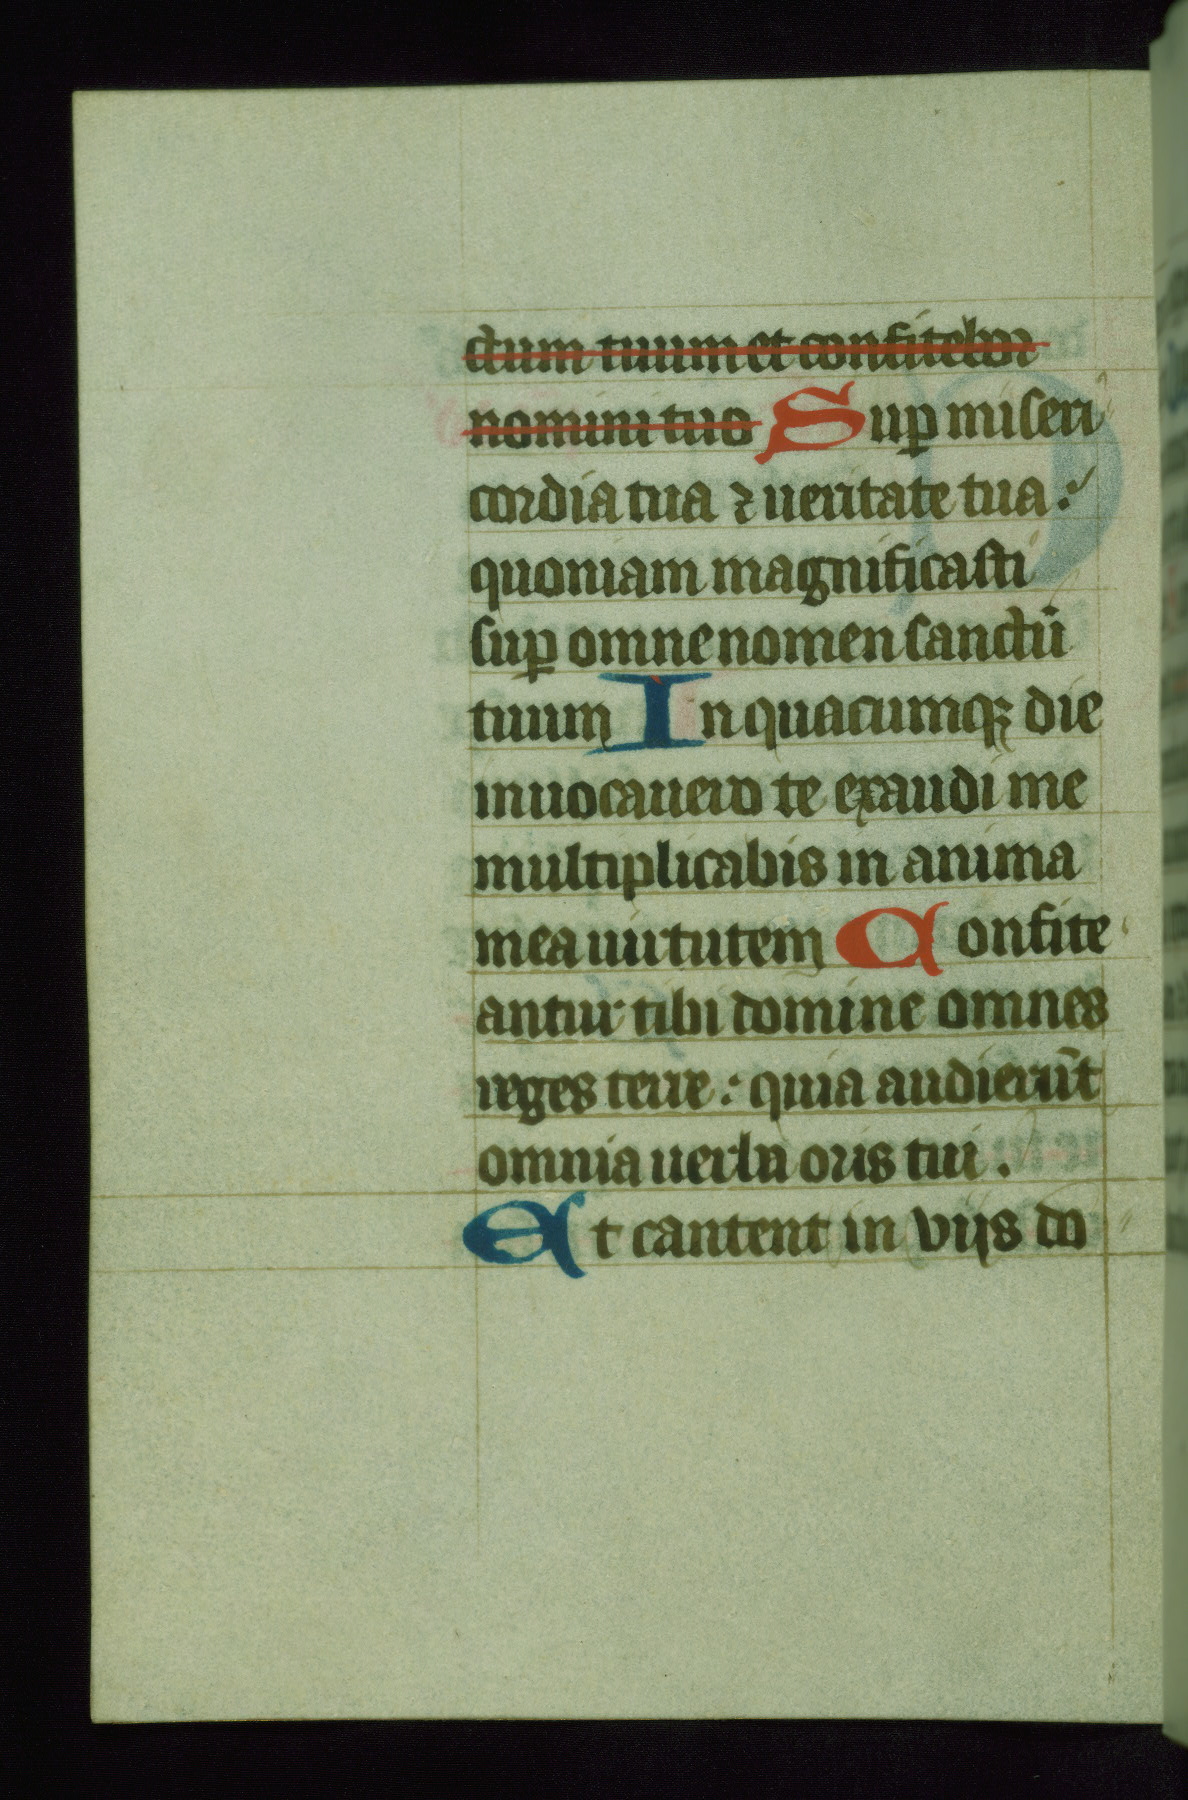 ctum tuum et confitebor
nomini tuo Sup miseri
cordia tua ⁊ ueritate tua:
quoniam magnificasti
sup omne nomen sanctū
tuum In quacumqꝫ die
inuocauero te exaudi me
multiplicabis in anima
mea uirtutem Confite
antur tibi domine omnes
reges terre: quia audierūt
omnia uerba oris tui.
Et cantent in vijs do